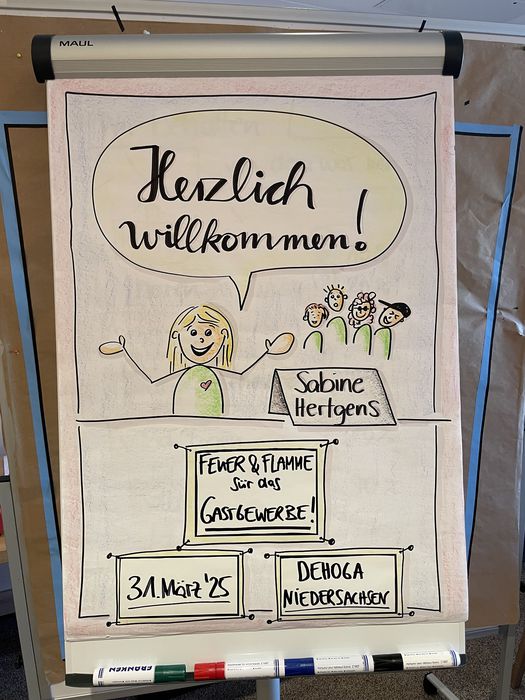 MAUL
Herzlich
willkommen!
Sabine
Hertgens
FEUER & FLAMME
für das
GASTGEWERBE!
31. März '25
DEHOGA
NIEDERSACHSEN
FRANKEN